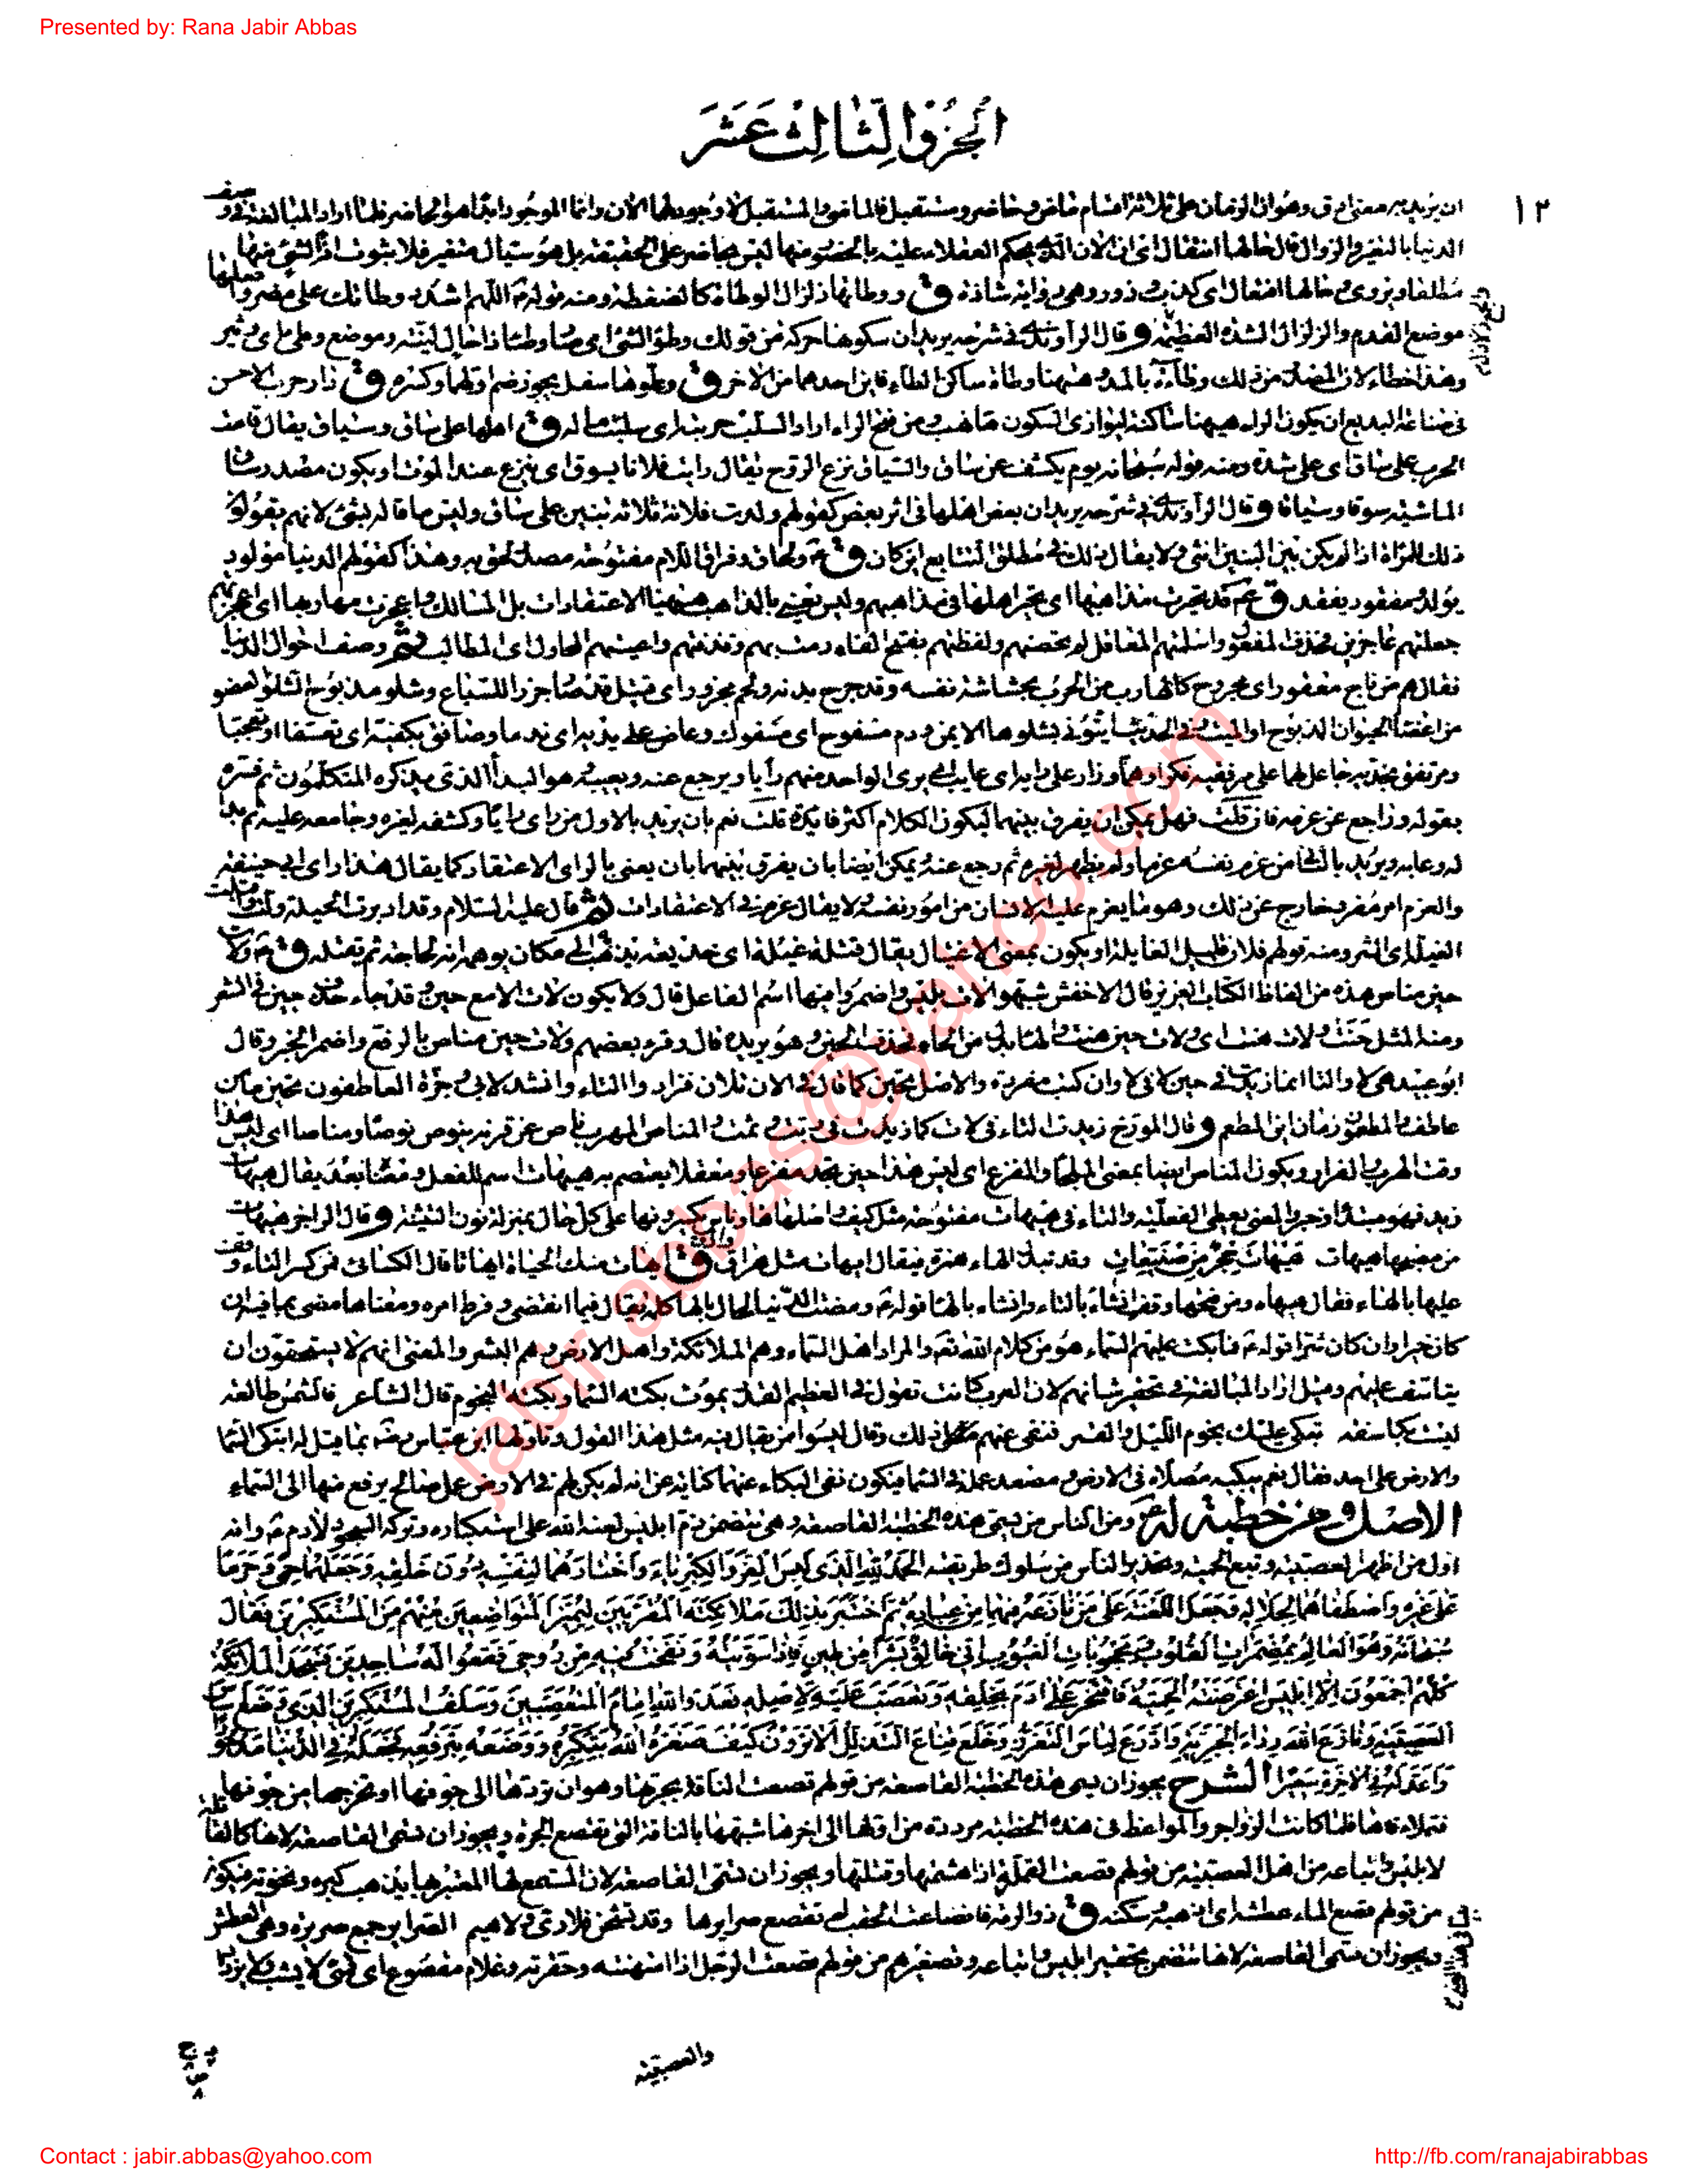 Presented by: Rana Jabir Abbas
الجزو الثالث عشر
١٢
ان يريد به معنى ادق وهو ان الزمان على ثلاثة اقسام ماض وحاضر ومستقبل فالماضى والمستقبل لا وجود لهما الان وانما الموجود ابدا هو الحاضر فلما اراد المبالغة فى وصف
الدنيا بالتغير والزوال قال حالها انتقال اى ان الان الذى يحكم العقلاء عليه بالحضور منها ليس بحاضر على الحقيقة بل هو سيال متغير فلا ثبوت اذا لشئ منها
مطلقا ويروى وحالها افتعال اى كذب وزور وهى رواية شاذة ق ووطاتها زلزال الوطاة كالضغطة ومنه قوله ص اللهم اشدد وطاتك على مضر واصلها
موضع القدم والزلزال الشدة العظيمة وقال الراوندى فى شرحه يريد ان سكونها حركة من قولك وطؤ الشئ اى صار وطيئا ذا حال لينة وموضع وطى اى وثير
وهذا خطاء لان المصدر من ذلك وطاءة بالمد وههنا وطاة ساكن الطاء فاين احدهما من الاخر ق وعلوها سفل يجوز ضم اولهما وكسره ق دار حرب الاحسن
فى صناعة البديع ان يكون الراء ههنا ساكنة ليوازى السكون هاء نهب ومن فتح الراء اراد السلب حربته اى سلبت ماله ق اهلها على ساق وسياق يقال قامت
الحرب على ساق اى على شدة ومنه قوله سبحانه يوم يكشف عن ساق والسياق نزع الروح يقال رايت فلانا يسوق اى ينزع عند الموت او يكون مصدر ساق
الماشية سوقا وسياقا وقال الراوندى فى شرحه يريد ان بعض اهلها فى اثر بعض كقولهم ولدت فلانة ثلاثة بنين على ساق وليس ما قاله بشئ لانهم يقولون
ذلك للمراة اذا لم يكن بين البنين انثى ولا يقال ذلك فى مطلق التتابع اين كان ق ع ولحاق وفراق اللام مفتوحة مصدر لحق به وهذا كقولهم الدنيا مولود
يولد ومفقود يفقد ق ع قد تحيرت مذاهبها اى تحير اهلها فى مذاهبهم وليس يعنى بالمذاهب ههنا الاعتقادات بل المسالك واعجزت مهاربها اى اعجزتهم
جعلتهم عاجزين فحذف المفعول واسلمتهم المعاقل لم تحصنهم ولفظتهم بفتح الفاء رمت بهم وقذفتهم واعيتهم المحاول اى المطالب ثم وصف احوال الدنيا
فقال هم من ناج معقور اى مجروح كالهارب من الحرب بحشاشة نفسه وقد جرح بدنه ولحم مجزور اى قتيل قد صار جزرا للسباع وشلو مذبوح الشلو العضو
من اعضاء الحيوان المذبوح او الميت وفى الحديث ائتونى بشلوها الايمن ودم مسفوح اى مسفوك وعاض على يديه اى ندما وصافق بكفيه اى تعسفا او تعجبا
ومرتفق بخديه جاعل لهما على مرفقيه فكرا وهما وزار على رايه اى عايب اى يرى الواحد منهم رأيا ويرجع عنه ويعيبه وهو البدأ الذى يذكره المتكلمون ثم فسره
بقوله وراجع عن عزمه فان قلت فهل يمكن ان يفرق بينهما ليكون الكلام اكثر فائدة قلت نعم بان يريد بالاول من راى رايا وكشفه لغيره وجامعه عليه ثم بدا
له وعابه ويريد بالثانى من عزم نفسه عزما ولم يظهر لغيره ثم رجع عنه ويمكن ايضا بان يفرق بينهما بان يعنى بالراى الاعتقاد كما يقال هذا راى ابى حنيفة
والعزم امر مفرد خارج عن ذلك وهو ما يعزم عليه الانسان من امور نفسه ولا يقال عزم فى الاعتقادات ثم قال عليه السلام وقد ادبرت الحيلة واقبلت
الغيلة اى الشر ومنه قولهم فلان قليل الغايلة او يكون بمعنى الاغتيال يقال قتله غيلة اى خديعة يذهب به الى مكان يوهمه انه لحاجة ثم يقتله ق ع ولات
حين مناص هذه من الفاظ الكتاب العزيز قال الاخفش شبهوا لات بليس واضمروا فيها اسم الفاعل قال ولا يكون لات الا مع حين وقد جاء حذف حين فى الشعر
ومنه المثل حنت ولات هنت اى ولات حين هنت والهاء بدل من الحاء فحذف الحين وهو يريده قال وقرء بعضهم ولات حين مناص بالرفع واضمر الخبر وقال
ابو عبيد هى لا والتاء انما زيدت فى حين كانى لا وان كتبت مفردة والاصل تحين كما قال فى الان تلان فزادوا التاء وانشد لابى وجزة العاطفون تحين ما من
عاطف والمطعمون زمان اين المطعم وقال المؤرخ زيدت التاء فى لات كما زيدت فى ربت وثمت والمناص المهرب ناص عن قرنه ينوص نوصا ومناصا اى ليس هذا
وقت الهرب والفرار ويكون المناص ايضا بمعنى الملجا والمفزع اى ليس هذا حين تجد مفزعا ومعقلا يعتصم به هيهات اسم للفعل ومعناه بعد يقال هيهات
زيد فهو مبتدا وخبر والمعنى يعطى الفعلية والتاء فى هيهات مفتوحة مثل كيف واصلها هاء وناس يكسرونها على كل حال بمنزلة نون التثنية وقال الراجز هيهات
من مصبحها هيهات هيهات حجر من صنيبعات وقد تبدل الهاء همزة فيقال ايهات مثل هراق واراق ق ايهات منك الحياة ايهاتا قال الكسائى فمن كسر التاء وقف
عليها بالهاء فقال هيهاه ومن فتحها وقف ان شاء بالتاء وان شاء بالهاء قوله ع ومضت الدنيا لحال بالها كلمة يقال فيما انقضى وفرط امره ومعناها مضى بما فيه ان
كان خيرا وان كان شرا قوله ع فما بكت عليهم السماء هو من كلام الله تعالى والمراد اهل السماء وهم الملائكة واهل الارض وهم البشر والمعنى انهم لا يستحقون ان
يتاسف عليهم وقيل اراد المبالغة فى تحقير شانهم لان العرب كانت تقول فى العظيم القدر يموت بكته السماء وبكته النجوم قال الشاعر فالشمس طالعة
ليست بكاسفة تبكى عليك نجوم الليل والقمر فنفى عنهم ذلك وقال ليسوا من يقال فيه مثل هذا القول وتاولها ابن عباس رضه لما قيل له اتبكى السماء
والارض على احد فقال نعم يبكيه مصلاه فى الارض ومصعد عمله فى السماء فيكون نفى البكاء عنهما كناية عن انه لم يكن لهم فى الارض عمل صالح يرفع منها الى السماء
الاصل ومن خطبة له ع ومن الناس من يسمى هذه الخطبة القاصعة وهى تتضمن ذم ابليس لعنه الله على استكباره وتركه السجود لادم ع وانه
اول من اظهر العصبية وتبع الحمية وتحذير الناس من سلوك طريقته الحمد لله الذى لبس العز والكبرياء واختارهما لنفسه دون خلقه وجعلهما حمى وحرما
على غيره واصطفاهما لجلاله وجعل اللعنة على من نازعه فيهما من عباده ثم اختبر بذلك ملائكته المقربين ليميز المتواضعين منهم من المستكبرين فقال
سبحانه وهو العالم بمضمرات القلوب ومحجوبات الغيوب انى خالق بشرا من طين فاذا سويته ونفخت فيه من روحى فقعوا له ساجدين فسجد الملائكة
كلهم اجمعون الا ابليس اعترضته الحمية فافتخر على ادم بخلقه وتعصب عليه لاصله فعدو الله امام المتعصبين وسلف المستكبرين الذى وضع اساس
العصبية ونازع الله رداء الجبرية وادرع لباس التعزز وخلع قناع التذلل الا ترون كيف صغره الله بتكبره ووضعه بترفعه فجعله فى الدنيا مدحورا
واعد له فى الاخرة سعيرا الشرح يجوز ان يسمى هذه الخطبة القاصعة من قولهم قصعت الناقة بجرتها وهو ان تردها الى جوفها او تخرجها من جوفها
فتملاء فاها فلما كانت الزواجر والمواعظ فى هذه الخطبة مرددة من اولها الى اخرها شبهها بالناقة التى تقصع الجرة ويجوز ان تسمى القاصعة لانها كالقاتلة
لابليس واتباعه من اهل العصبية من قولهم قصعت القملة اذا هشمتها وقتلتها ويجوز ان تسمى القاصعة لان المستمع لها المعتبر بها يذهب كبره ونخوته فيكون
من قولهم قصع الماء عطشه اى اذهبه وسكنه ق ذو الرمة فانصاعت الحقب لم تقصع صرايرها وقد نشحن فلا رى ولا هيم الصراير جمع صريرة وهى العطش
ويجوز ان تسمى القاصعة لانها تتضمن تحقير ابليس واتباعه وتصغيرهم من قولهم قصعت الرجل اذا امتهنته وحقرته وغلام مقصوع اى قمئ لا يشب ولا يزداد
والعصبية
Contact : jabir.abbas@yahoo.com
http://fb.com/ranajabirabbas
jabir.abbas@yahoo.com